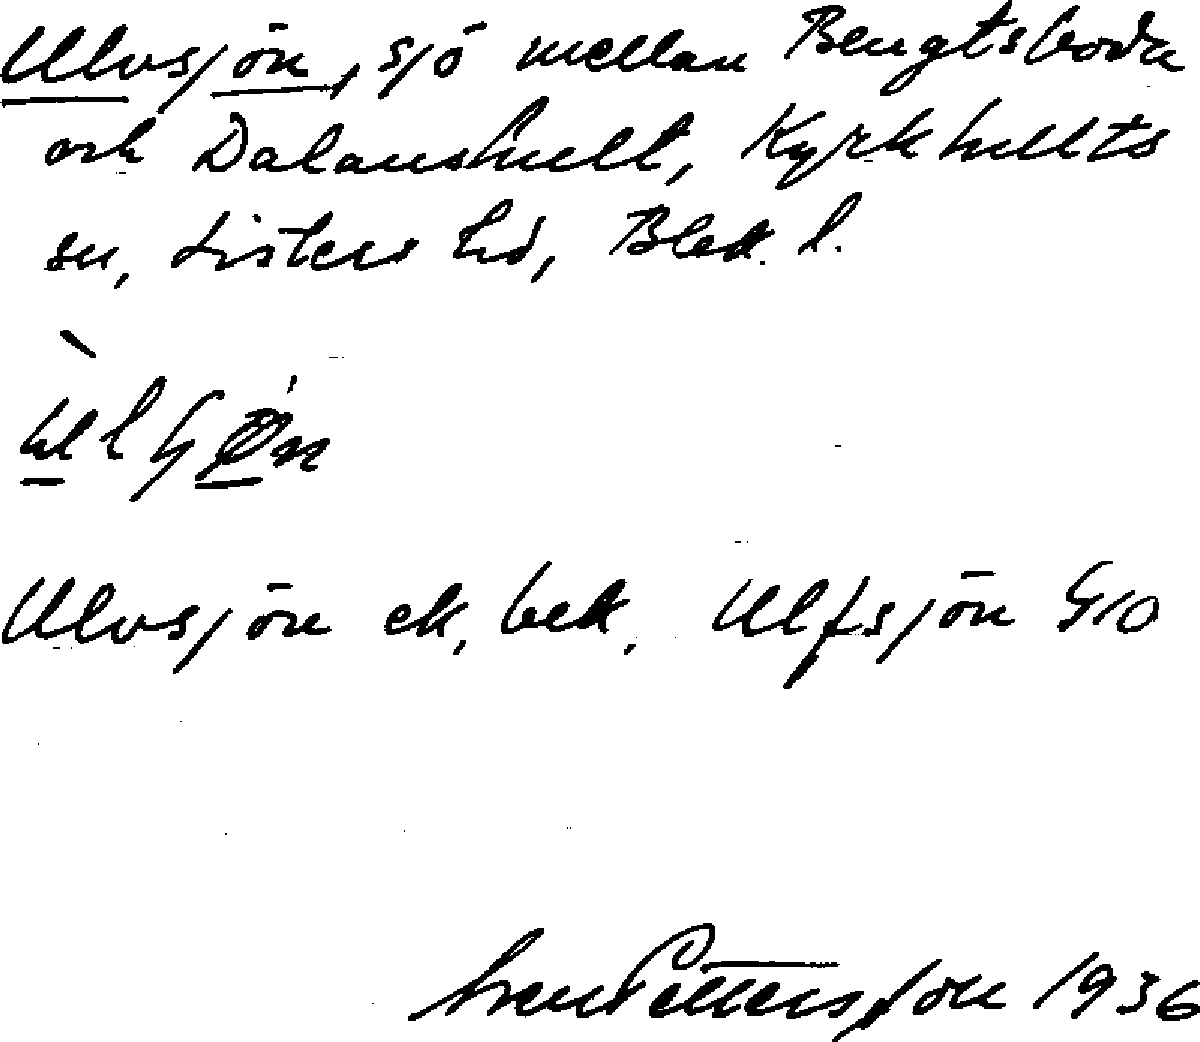 Ulvsjön, sjö mellan Bengtsboda
och Dalanshult, Kyrkhults
sn, Listers hd, Blek. l.
Ulvsjön ek, bek. Ulfsjön G10
Sven Pettersson 1936